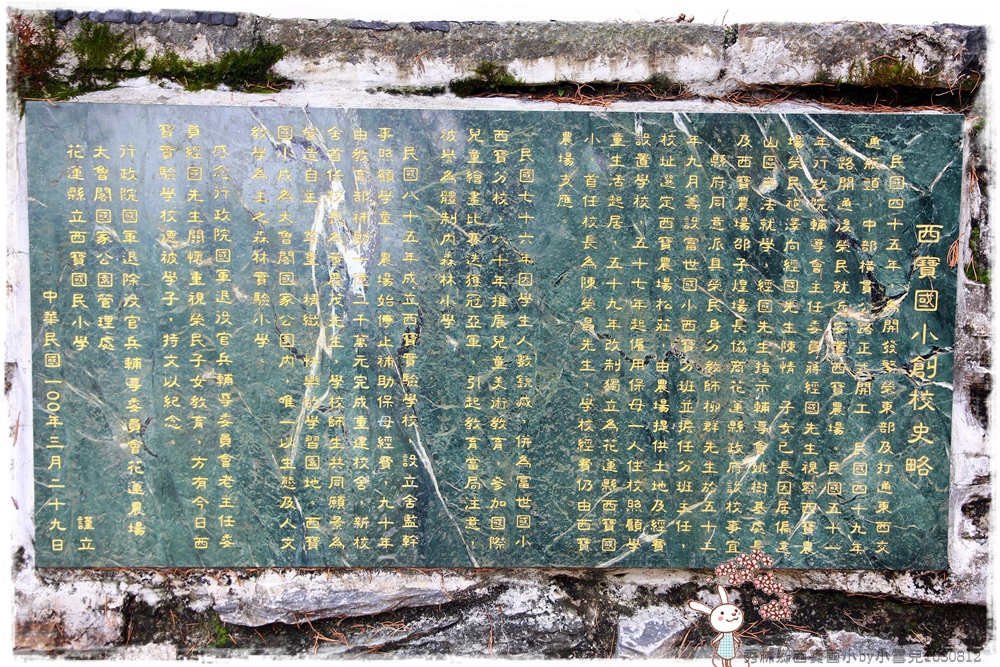 西寶國小創校史略
民國四十五年，開發繁榮東部及打通東西交
通瓶頸，中部橫貫公路正式開工，民國四十九年
路開通後榮民就近安置西寶農場，民國五十一
年行政院輔導會主任委員蔣經國先生視察西寶農
場榮民 向經國先生陳情，子女已長因居偏遠
山區無法就學，經國先生指示輔導會姚樹基處長
及西寶農場邵子煌場長協商花蓮縣政府設校事宜
，縣府同意派具榮民身分教師柳群先生於五十二
年九月籌設富世國小西寶分班並擔任分班主任，
校址選定西寶農場松莊，由農場提供土地及經費
設置學校，五十七年起僱用保母一人住校照顧學
童生活起居，五十九年改制獨立為花蓮縣西寶國
小，首任校長為陳榮晨先生，學校經費仍由西寶
農場支應。
民國七十六年因學生人數銳減，併為富世國小
西寶分校，八十年推展兒童美術教育，參加國際
兒童繪畫比賽迭獲冠亞軍，引起教育當局注意，
被譽為體制內森林小學。
民國八十五年成立西寶實驗學校，設立舍監幹
事照顧學童，農場始停止補助保母經費，九十年
由教育部補助一億二千萬元完成重建校舍，新校
舍首任校長為 茂先生，學校師生共同願景為
營造自主、尊重、精緻、樂學的學習園地，西寶
國小成為太魯閣國家公園內，唯一以生態及人文
教學為主之森林實驗小學。
感念行政院國軍退役官兵輔導委員會老主任委
員經國先生關懷重視榮民子女教育，方有今日西
寶實驗學校德被學子，特文以紀念。
行政院國軍退除役官兵輔導委員會花蓮農場
太魯閣國家公園管理處
花蓮縣立西寶國民小學 謹立
中華民國一００年三月二十九日
秀林鄉西寶國小by小雪兒1030812